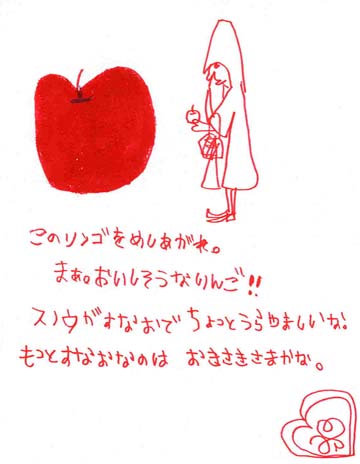 このリンゴをめしあがれ。
まぁ。おいしそうなりんご!!
スノウがすなおでちょっとうらやましいな!
もっとすなおなのは おきさきさまかな。